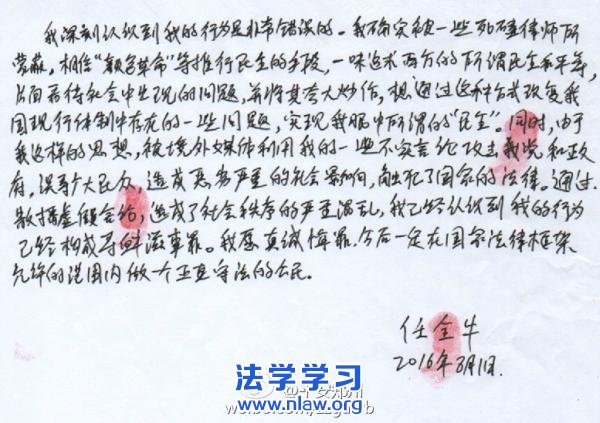 我深刻认识到我的行为是非常错误的。我确实被一些死磕律师所
蒙蔽，相信“颜色革命”等推行民主的手段，一味追求西方的所谓民主和平等，
片面看待社会中出现的问题，并将其夸大炒作，想通过这种方式改变我
国现行体制中存在的一些问题，实现我眼中所谓的“民主”。同时，由于
我这样的思想，被境外媒体利用我的一些不实言论攻击我党和政
府，误导广大民众，造成恶劣严重的社会影响，触犯了国家的法律。通过
散播虚假言论，造成了社会秩序的严重混乱，我已经认识到我的行为
已经构成寻衅滋事罪。我愿真诚悔罪，今后一定在国家法律框架
允许的范围内做一个正直守法的公民。
任全牛
2016年8月1日.
法学学习
www.nlaw.org
@平安郑州